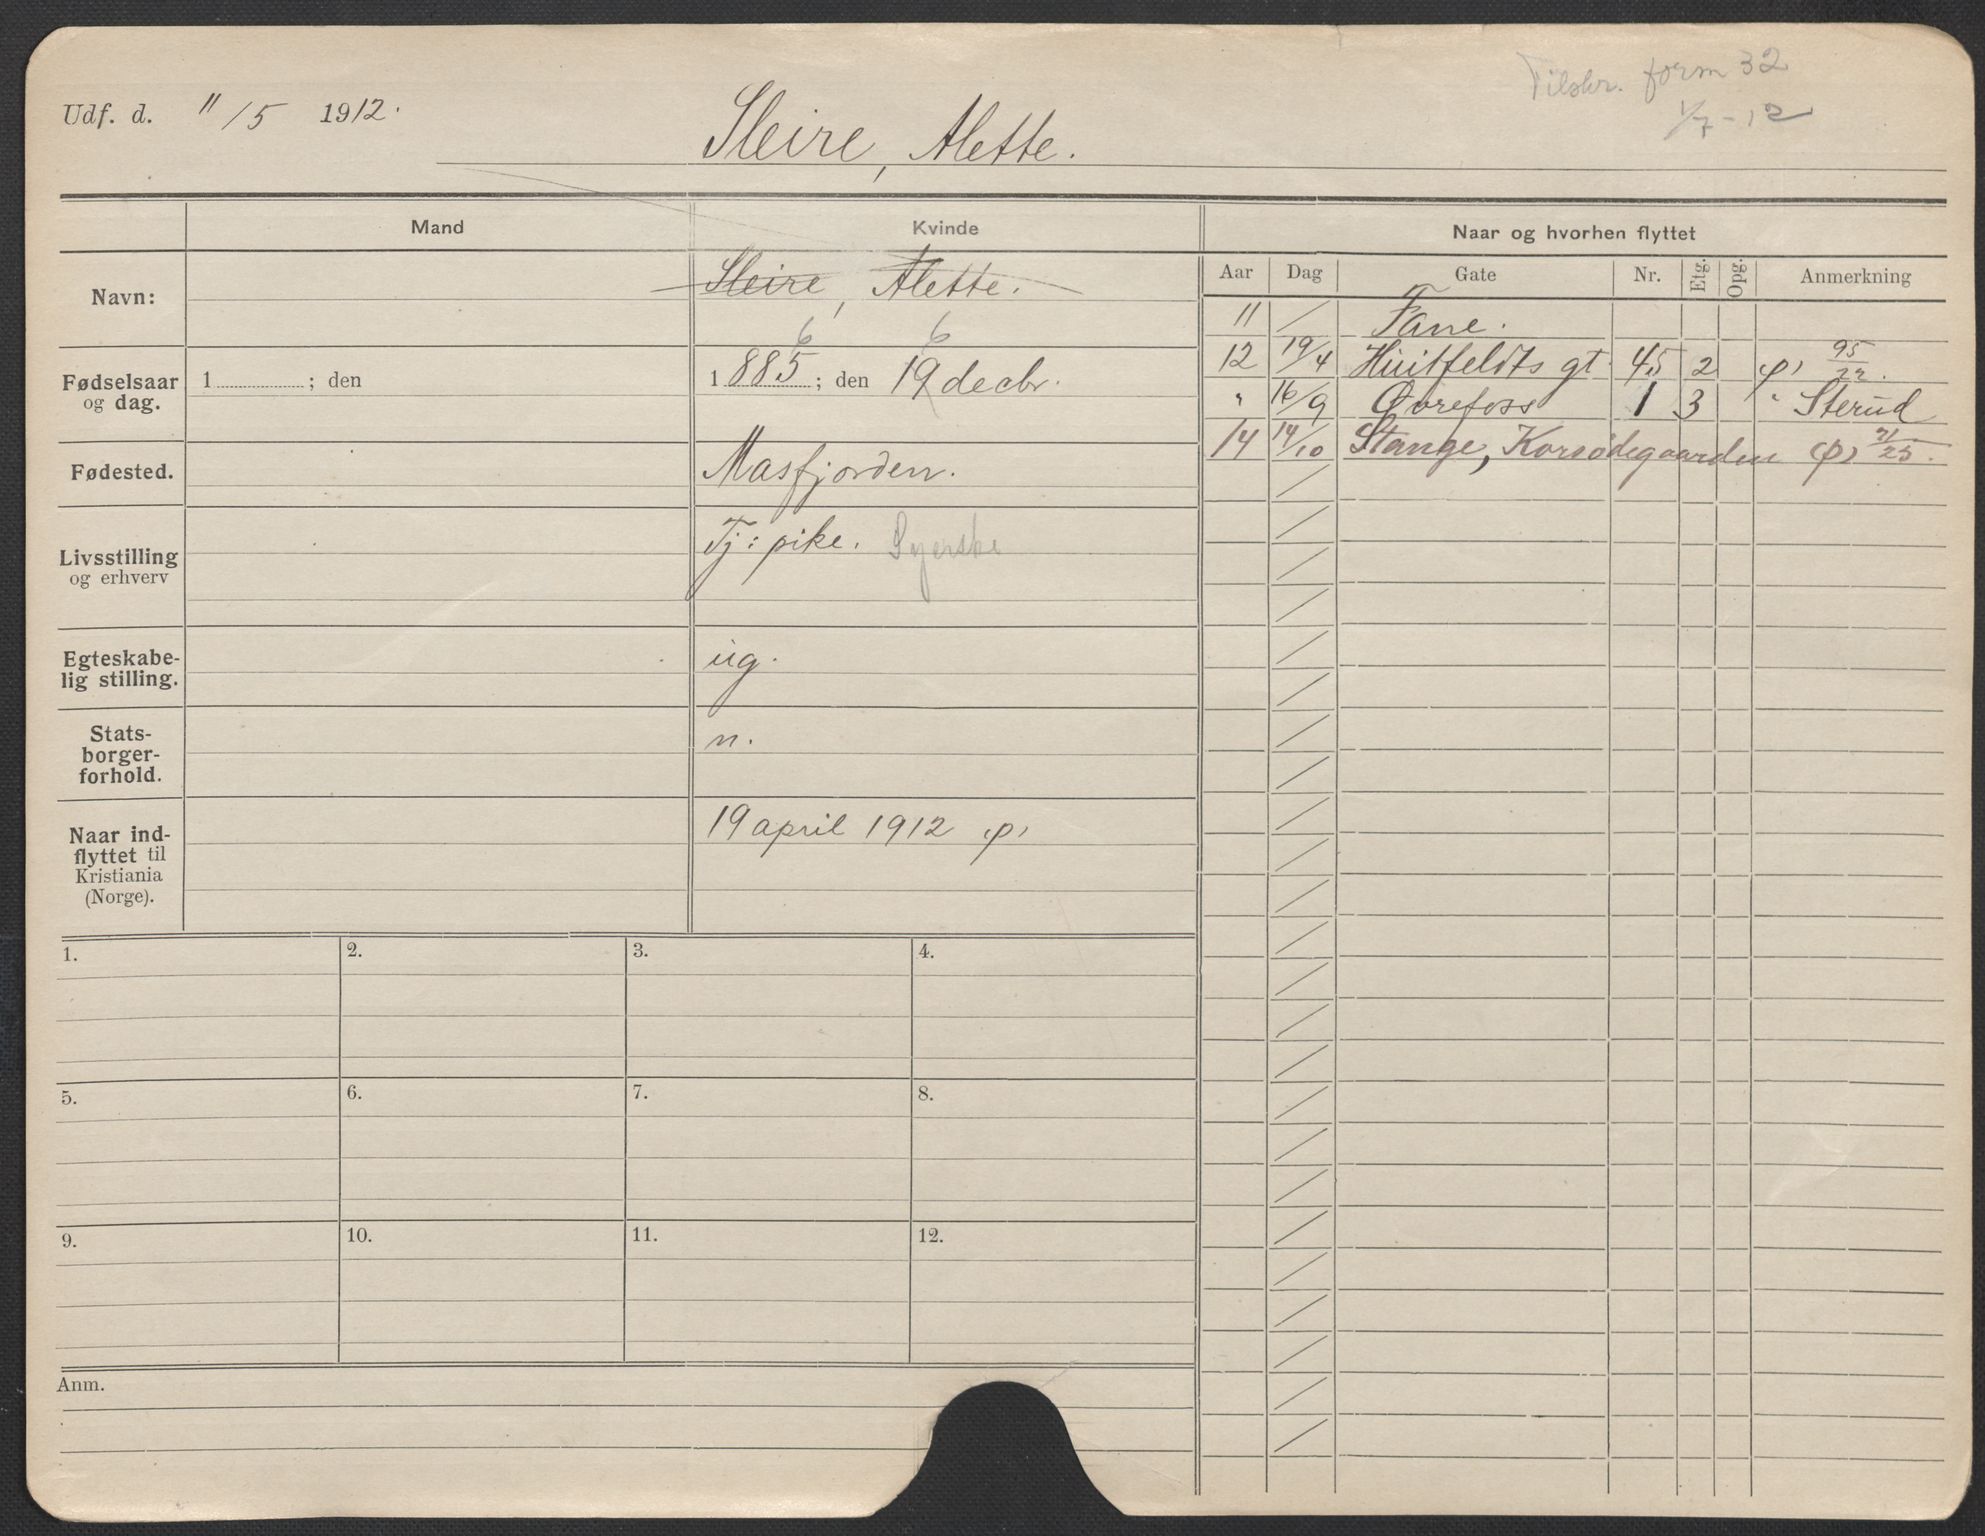 Tilskr. form 32
1/7 - 12
Udf. d. 11/5 1912.
Sleire, Alette.
Mand
Kvinde
Naar og hvorhen flyttet
Aar Dag Gate Nr. Etg. Opg. Anmerkning
Navn:
Sleire, Alette.
11 / Fane.
12 19/4 Huitfeldts gt. 45 2 (p) 95/22.
" 16/9 Øvrefoss 1 3 " Sterud
14 14/10 Stange, Korsødegaarden (p) 21/25.
6 6
Fødselsaar og dag.
1 ; den
1885 ; den 19 decbr.
Fødested.
Masfjorden.
Livsstilling og erhverv
Tj: pike. Syerske
Egteskabe-
lig stilling.
ug.
Stats-
borger-
forhold.
n.
Naar ind-
flyttet til
Kristiania
(Norge).
19 april 1912 (p)
1. 2. 3. 4.
5. 6. 7. 8.
9. 10. 11. 12.
Anm.